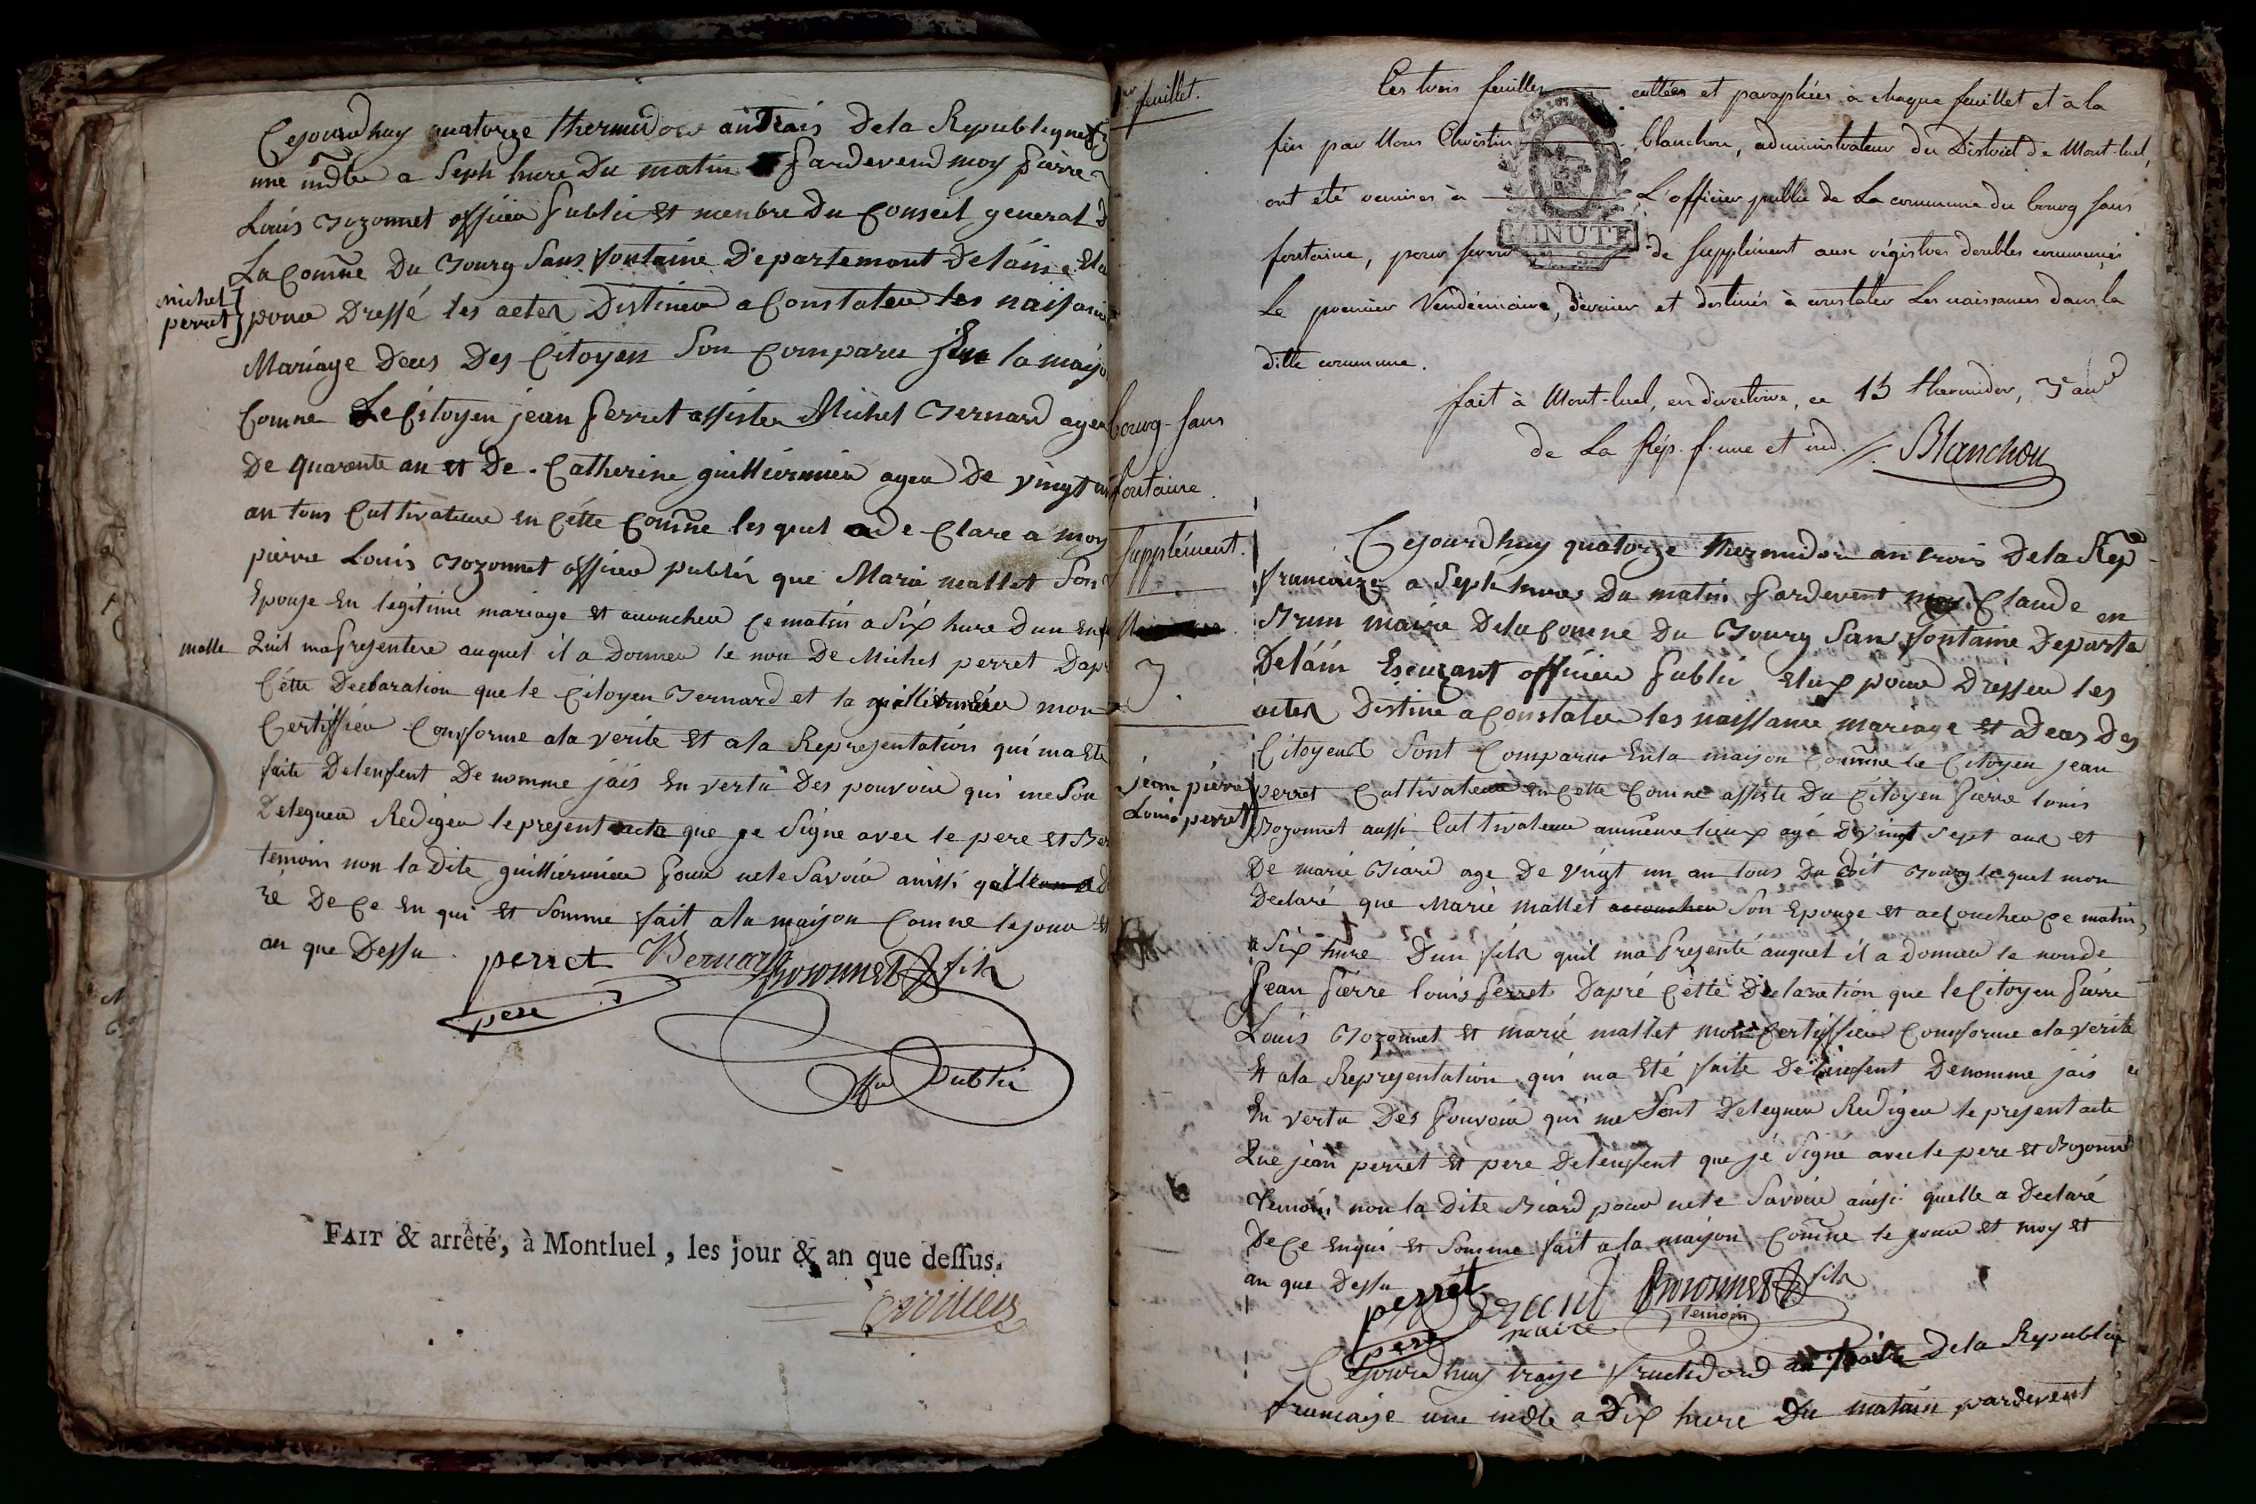 Cejourdhuy quatorze thermidor an trais De la Republique
une indle a Seph hure Du matin pardevend moy pierre
Louis Bozonnet officier public et menbre Du Conseil general
La Comne Du Bourg Sans fontaine Departement Delain Elu
michel
perret
pour Dressé les actes Distiner a Constater les naisance
Mariage Deces Des Citoyen Son Comparu En la maison
Comne Le Citoyen jean perret assister Michel Bernard ager
De quarente an et De Catherine guilliermier ager De vingt
an tous Cultivateur en Cétte Comne les quel a de Clare a moy
pierre Louis Bozonnet officier publix que Marie mallet Son
Epouse En legitime mariage et acoucher Ce matin a Six hure Dun
malle
Quil ma presentere auquel il a Donner le non De Michel perret Dapré
Cétte Declaration que le Citoyen Bernard et la guilliermier mon
Certiffier Conforme a la verite et a la Representation qui ma Ete
faite Delenfent Denomme jais En vertu Des pouvoir qui me Son
Deleguer Rediger le present acte que je Signe avec le pere et
temoin non la Dite guilliermier pour nele Savoir ainssi
ré De Ce En qui et Somme fait a la maison Comne le jour et
an que Dessu.
perret Bernard Bozonnet fils
pere
off public
FAIT & arrêté, à Montluel, les jour & an que dessus.
feuillet.
Les trois feuilles cottées et paraphées à chaque feuillet et à la
fin par Nous Christin Blanchon, administrateur du District de Mont-luel,
ont été remises à L'officier public de La commune du bourg sans
MINUTE
fontaine, pour servir de supplément aux régistres doubles
Le premier Vendémiaire, dernier et destinés à constater Les naissances dans la
ditte commune.
fait à Mont-luel, en directoire, ce 13 thermidor, 3e an
de La Rép. f. une et ind. Blanchon
bourg-sans
fontaine.
supplément.
Cejourdhuy quatorze thermidor an trois De la Rep
francaize a Seph hures Du matin pardevent moy Claude
Brun maire Dela Comne Du Bourg San fontaine Departe en
Delain Exerçant officier public Elux pour Dresser les
actes Distine a Constater les naissance mariage et Deces Des
Citoyens Sont Comparus En la maison Comne le Citoyen jean
jean pierre
Louis perret
perret Cultivateur en Cette Comne assiste Du Citoyen pierre louis
Bozonnet aussi Cultivateur au meme lieux agé De vingt sept ans et
De marie Biard age De vingt un an tous Du dit Bourg lequel mon
Declaré que Marie Mallet acoucher Son Epouze et acoucher ce matin
a Six hure Dun fils quil ma presenté auquel il a Donner le nom de
Jean pierre louis perret Dapré Cétte Declaration que le Citoyen pierre
Louis Bozonnet et marie mallet mon Certiffier Comforme a la verite
Et ala Representation qui ma Eté faite De lenfent Denomme jais
En vertu Des pouvoir qui me Sont Deleguer Rediger le present acte
Que jean perret et pere Delenfent que jé Signé avec le pere et Bozonnet
Temoin non la Dite Biard pour nele Savoir ainsi quelle a Declaré
De Ce Enqui et Somme fait a la maison Comne le jour et moy et
an que Dessu
perret Brun Bozonnet fils
pere maire temoin
Cejourdhuy traise fructidor an trois De la Republique
francaise une indle a Dix hure Du matain pardevent